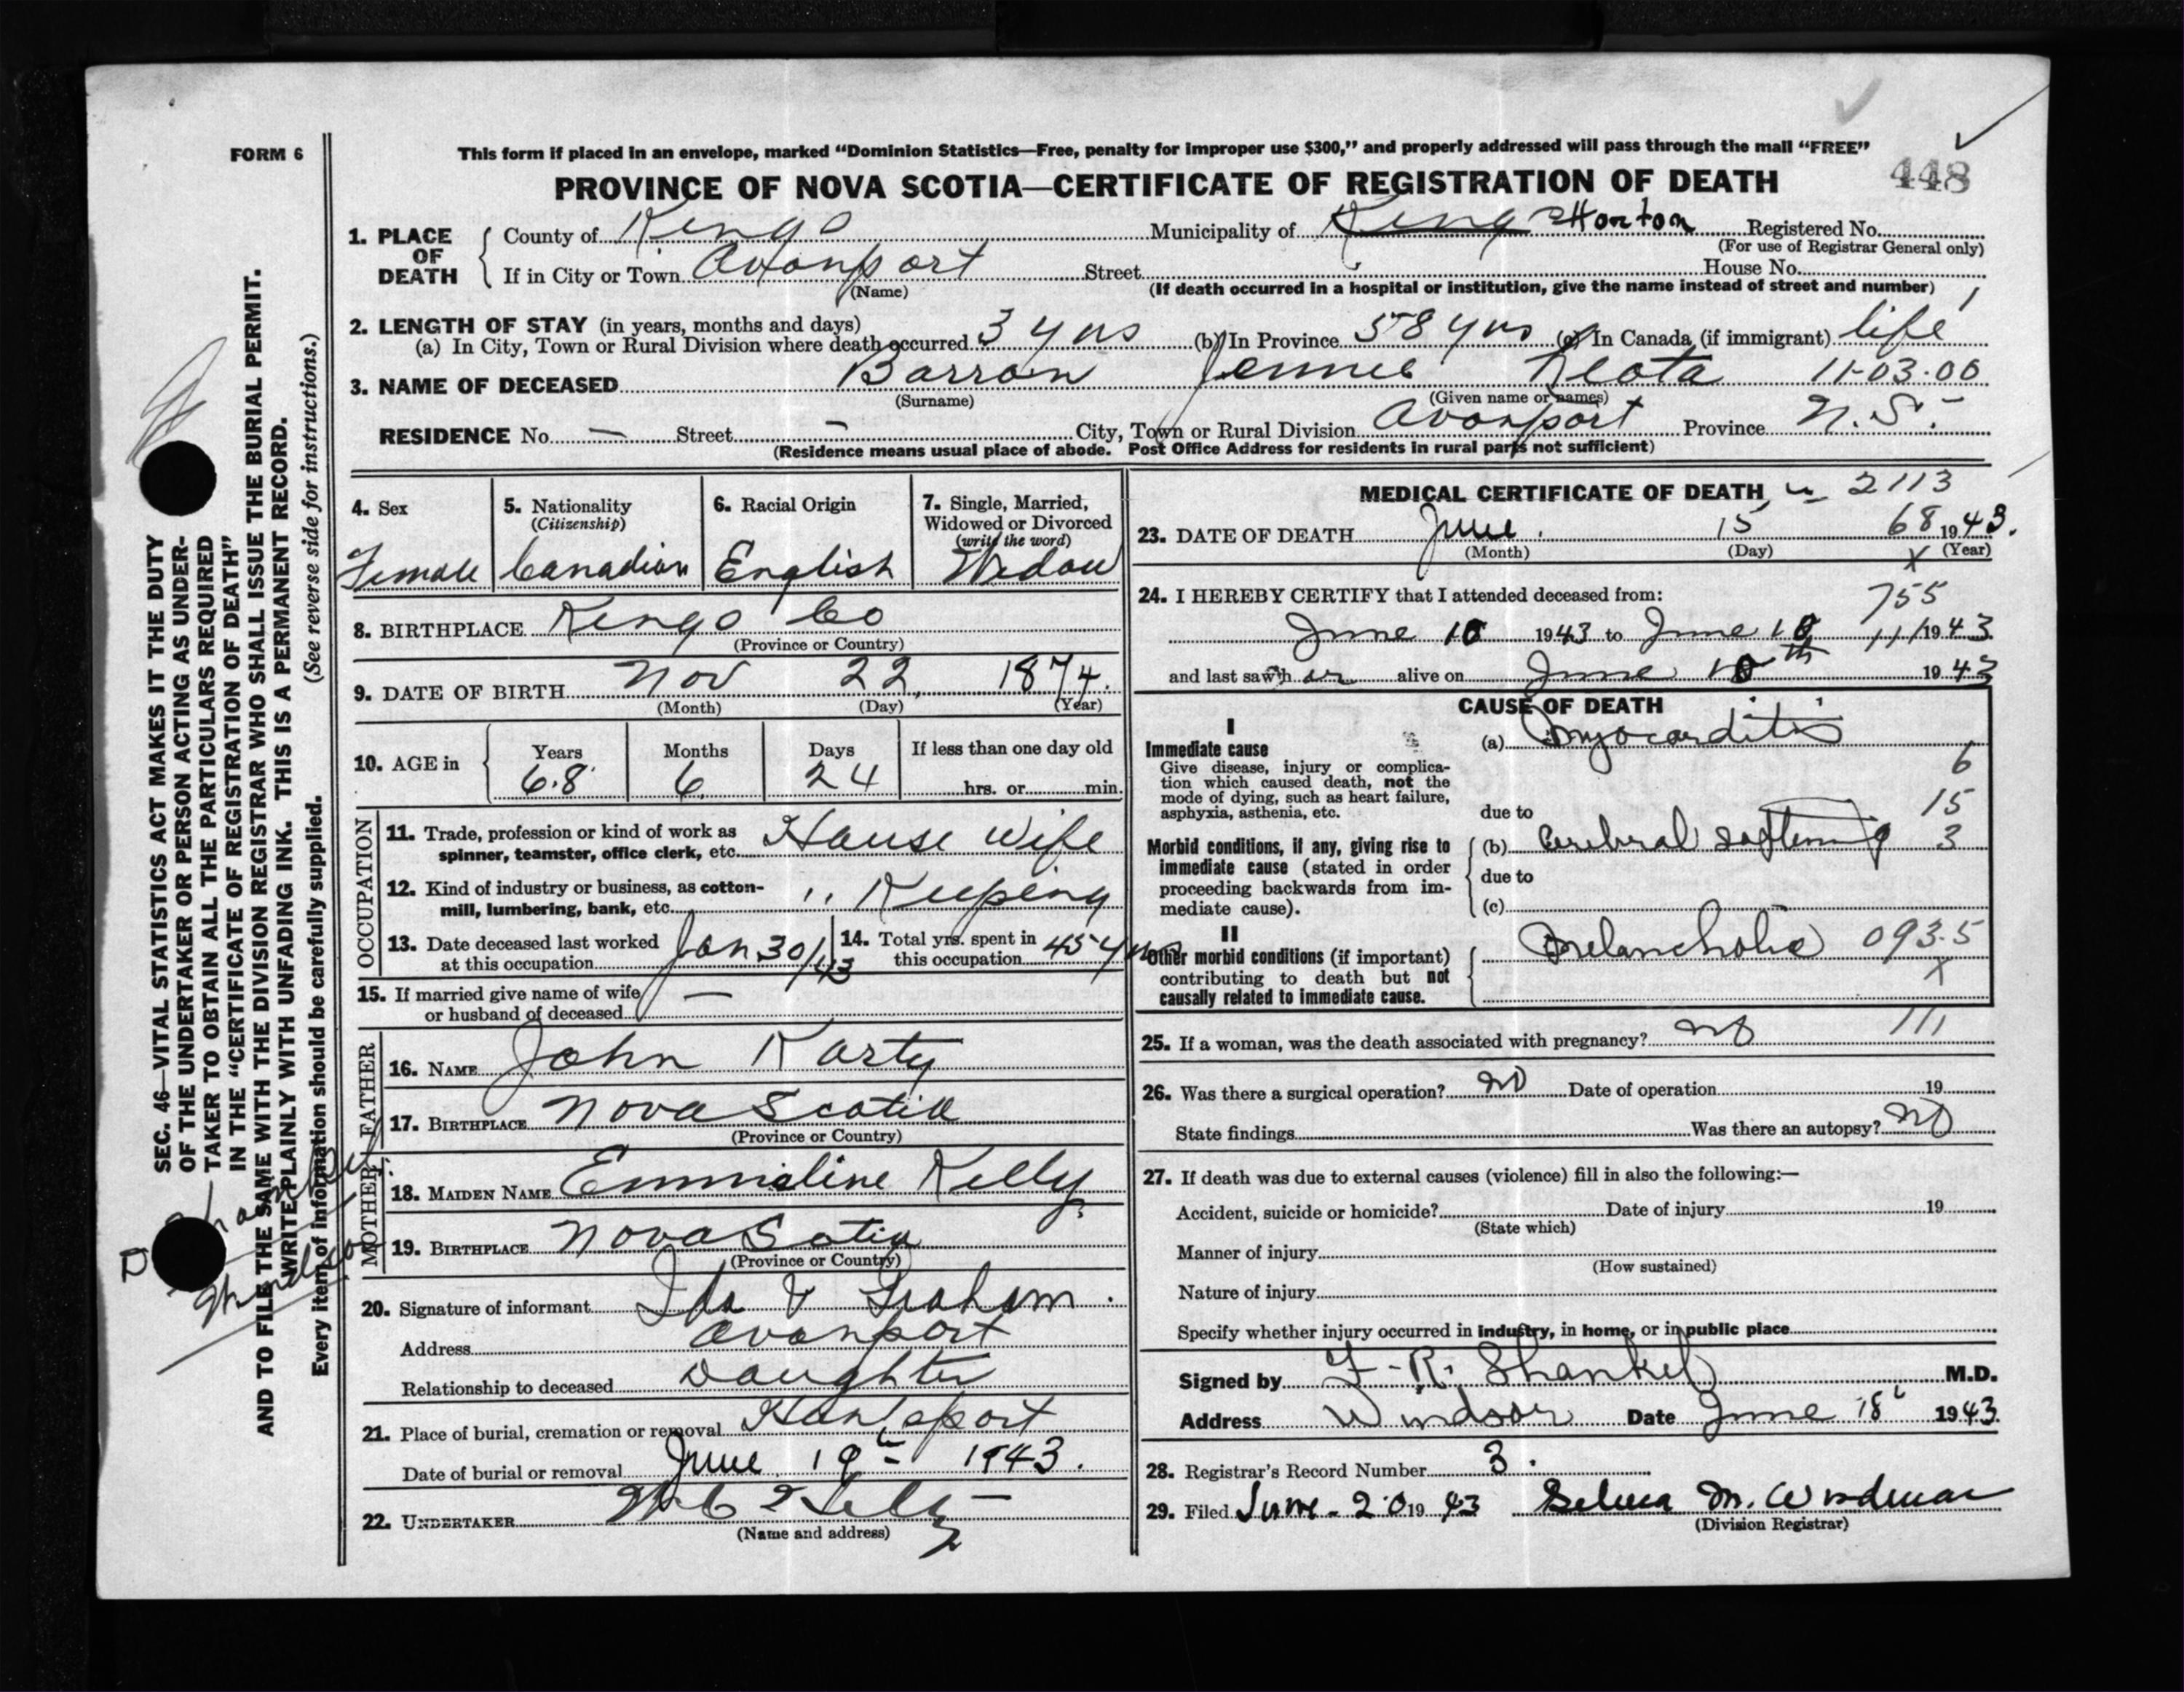 FORM 6
This form if placed in an envelope, marked “Dominion Statistics—Free, penalty for improper use $300,” and properly addressed will pass through the mail “FREE”
PROVINCE OF NOVA SCOTIA—CERTIFICATE OF REGISTRATION OF DEATH 448
1. PLACE OF DEATH County of Kings Municipality of Kings Horton Registered No.
(For use of Registrar General only)
If in City or Town Avonport Street House No.
(Name) (If death occurred in a hospital or institution, give the name instead of street and number)
2. LENGTH OF STAY (in years, months and days)
(a) In City, Town or Rural Division where death occurred 3 yrs (b) In Province 58 yrs (c) In Canada (if immigrant) life
3. NAME OF DECEASED Barron Jennie Leota 11-03-00
(Surname) (Given name or names)
RESIDENCE No. — Street - City, Town or Rural Division Avonport Province N.S.
(Residence means usual place of abode. Post Office Address for residents in rural parts not sufficient)
4. Sex
Female
5. Nationality
(Citizenship)
Canadian
6. Racial Origin
English
7. Single, Married,
Widowed or Divorced
(write the word)
Widow
8. BIRTHPLACE Kings Co
(Province or Country)
9. DATE OF BIRTH Nov 22, 1874.
(Month) (Day) (Year)
10. AGE in Years Months Days If less than one day old
68 6 24 hrs. or min.
OCCUPATION
11. Trade, profession or kind of work as
spinner, teamster, office clerk, etc. House Wife
12. Kind of industry or business, as cotton-
mill, lumbering, bank, etc. " Keeping
13. Date deceased last worked
at this occupation Jan 30/43
14. Total yrs. spent in
this occupation 45 yrs
15. If married give name of wife
or husband of deceased —
FATHER
16. NAME John Karty
17. BIRTHPLACE Nova Scotia
(Province or Country)
MOTHER
18. MAIDEN NAME Emmeline Kelly
19. BIRTHPLACE Nova Scotia
(Province or Country)
20. Signature of informant Ida V Graham.
Address Avonport
Relationship to deceased Daughter
21. Place of burial, cremation or removal Hantsport
Date of burial or removal June 19th 1943.
22. UNDERTAKER
(Name and address)
MEDICAL CERTIFICATE OF DEATH 2113
23. DATE OF DEATH June 15 68 1943.
(Month) (Day) X (Year)
24. I HEREBY CERTIFY that I attended deceased from: 755
June 10 1943 to June 10 111 1943
and last saw her alive on June 10th 1943
CAUSE OF DEATH
I
Immediate cause
Give disease, injury or complica-
tion which caused death, not the
mode of dying, such as heart failure,
asphyxia, asthenia, etc.
(a) Myocarditis
6
15
due to
Morbid conditions, if any, giving rise to
immediate cause (stated in order
proceeding backwards from im-
mediate cause).
(b) Cerebral softening 3
due to
(c)
II
Other morbid conditions (if important)
contributing to death but not
causally related to immediate cause.
Melancholia 093.5
X
25. If a woman, was the death associated with pregnancy? no 111
26. Was there a surgical operation? no Date of operation 19
State findings Was there an autopsy? no
27. If death was due to external causes (violence) fill in also the following:—
Accident, suicide or homicide? Date of injury 19
(State which)
Manner of injury
(How sustained)
Nature of injury
Specify whether injury occurred in industry, in home, or in public place
Signed by F. R. Shankel M.D.
Address Windsor Date June 18 1943.
28. Registrar's Record Number 3.
29. Filed June - 20 1943 Selena M. Woodman
(Division Registrar)
SEC. 46—VITAL STATISTICS ACT MAKES IT THE DUTY
OF THE UNDERTAKER OR PERSON ACTING AS UNDER-
TAKER TO OBTAIN ALL THE PARTICULARS REQUIRED
IN THE “CERTIFICATE OF REGISTRATION OF DEATH”
AND TO FILE THE SAME WITH THE DIVISION REGISTRAR WHO SHALL ISSUE THE BURIAL PERMIT.
WRITE PLAINLY WITH UNFADING INK. THIS IS A PERMANENT RECORD.
Every item of information should be carefully supplied. (See reverse side for instructions.)